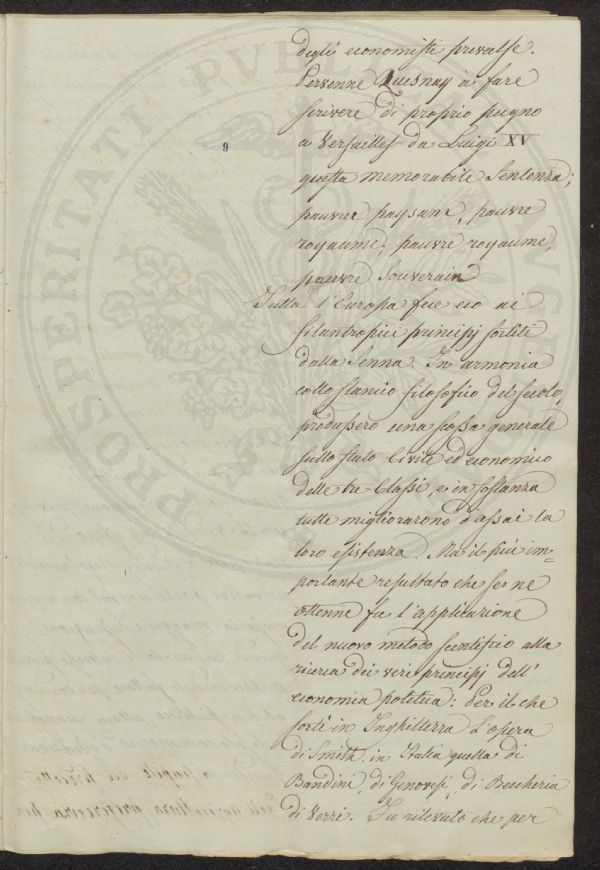 degli economisti prevalse.
Pervenne Quesnay a fare
scrivere di proprio pugno
a Versailles da Luigi XV
questa memorabile Sentenza;
pauvre paysant, pauvre
royaume; pauvre royaume,
pauvre Souverain
9
Tutta l'Europa fece eco ai
filantropici principj sortiti
dalla Senna. In armonia
collo slancio filosofico del secolo,
produssero una scossa generale
sullo stato Civile ed economico
delle tre Classi, e in sostanza
tutte migliorarono d'assai la
loro esistenza. Ma il più im=
portante resultato che se ne
ottenne fu l'applicazione
del nuovo metodo scentifico alla
ricerca dei veri principj dell'
economia politica: Per il che
sortì in Inghilterra l'opera
di Smith, in Italia quella di
Bandini, di Genovesi, di Beccheria
di Verri. Fu rilevato che per
PROSPERITATI PUBLICAE AUGENDAE